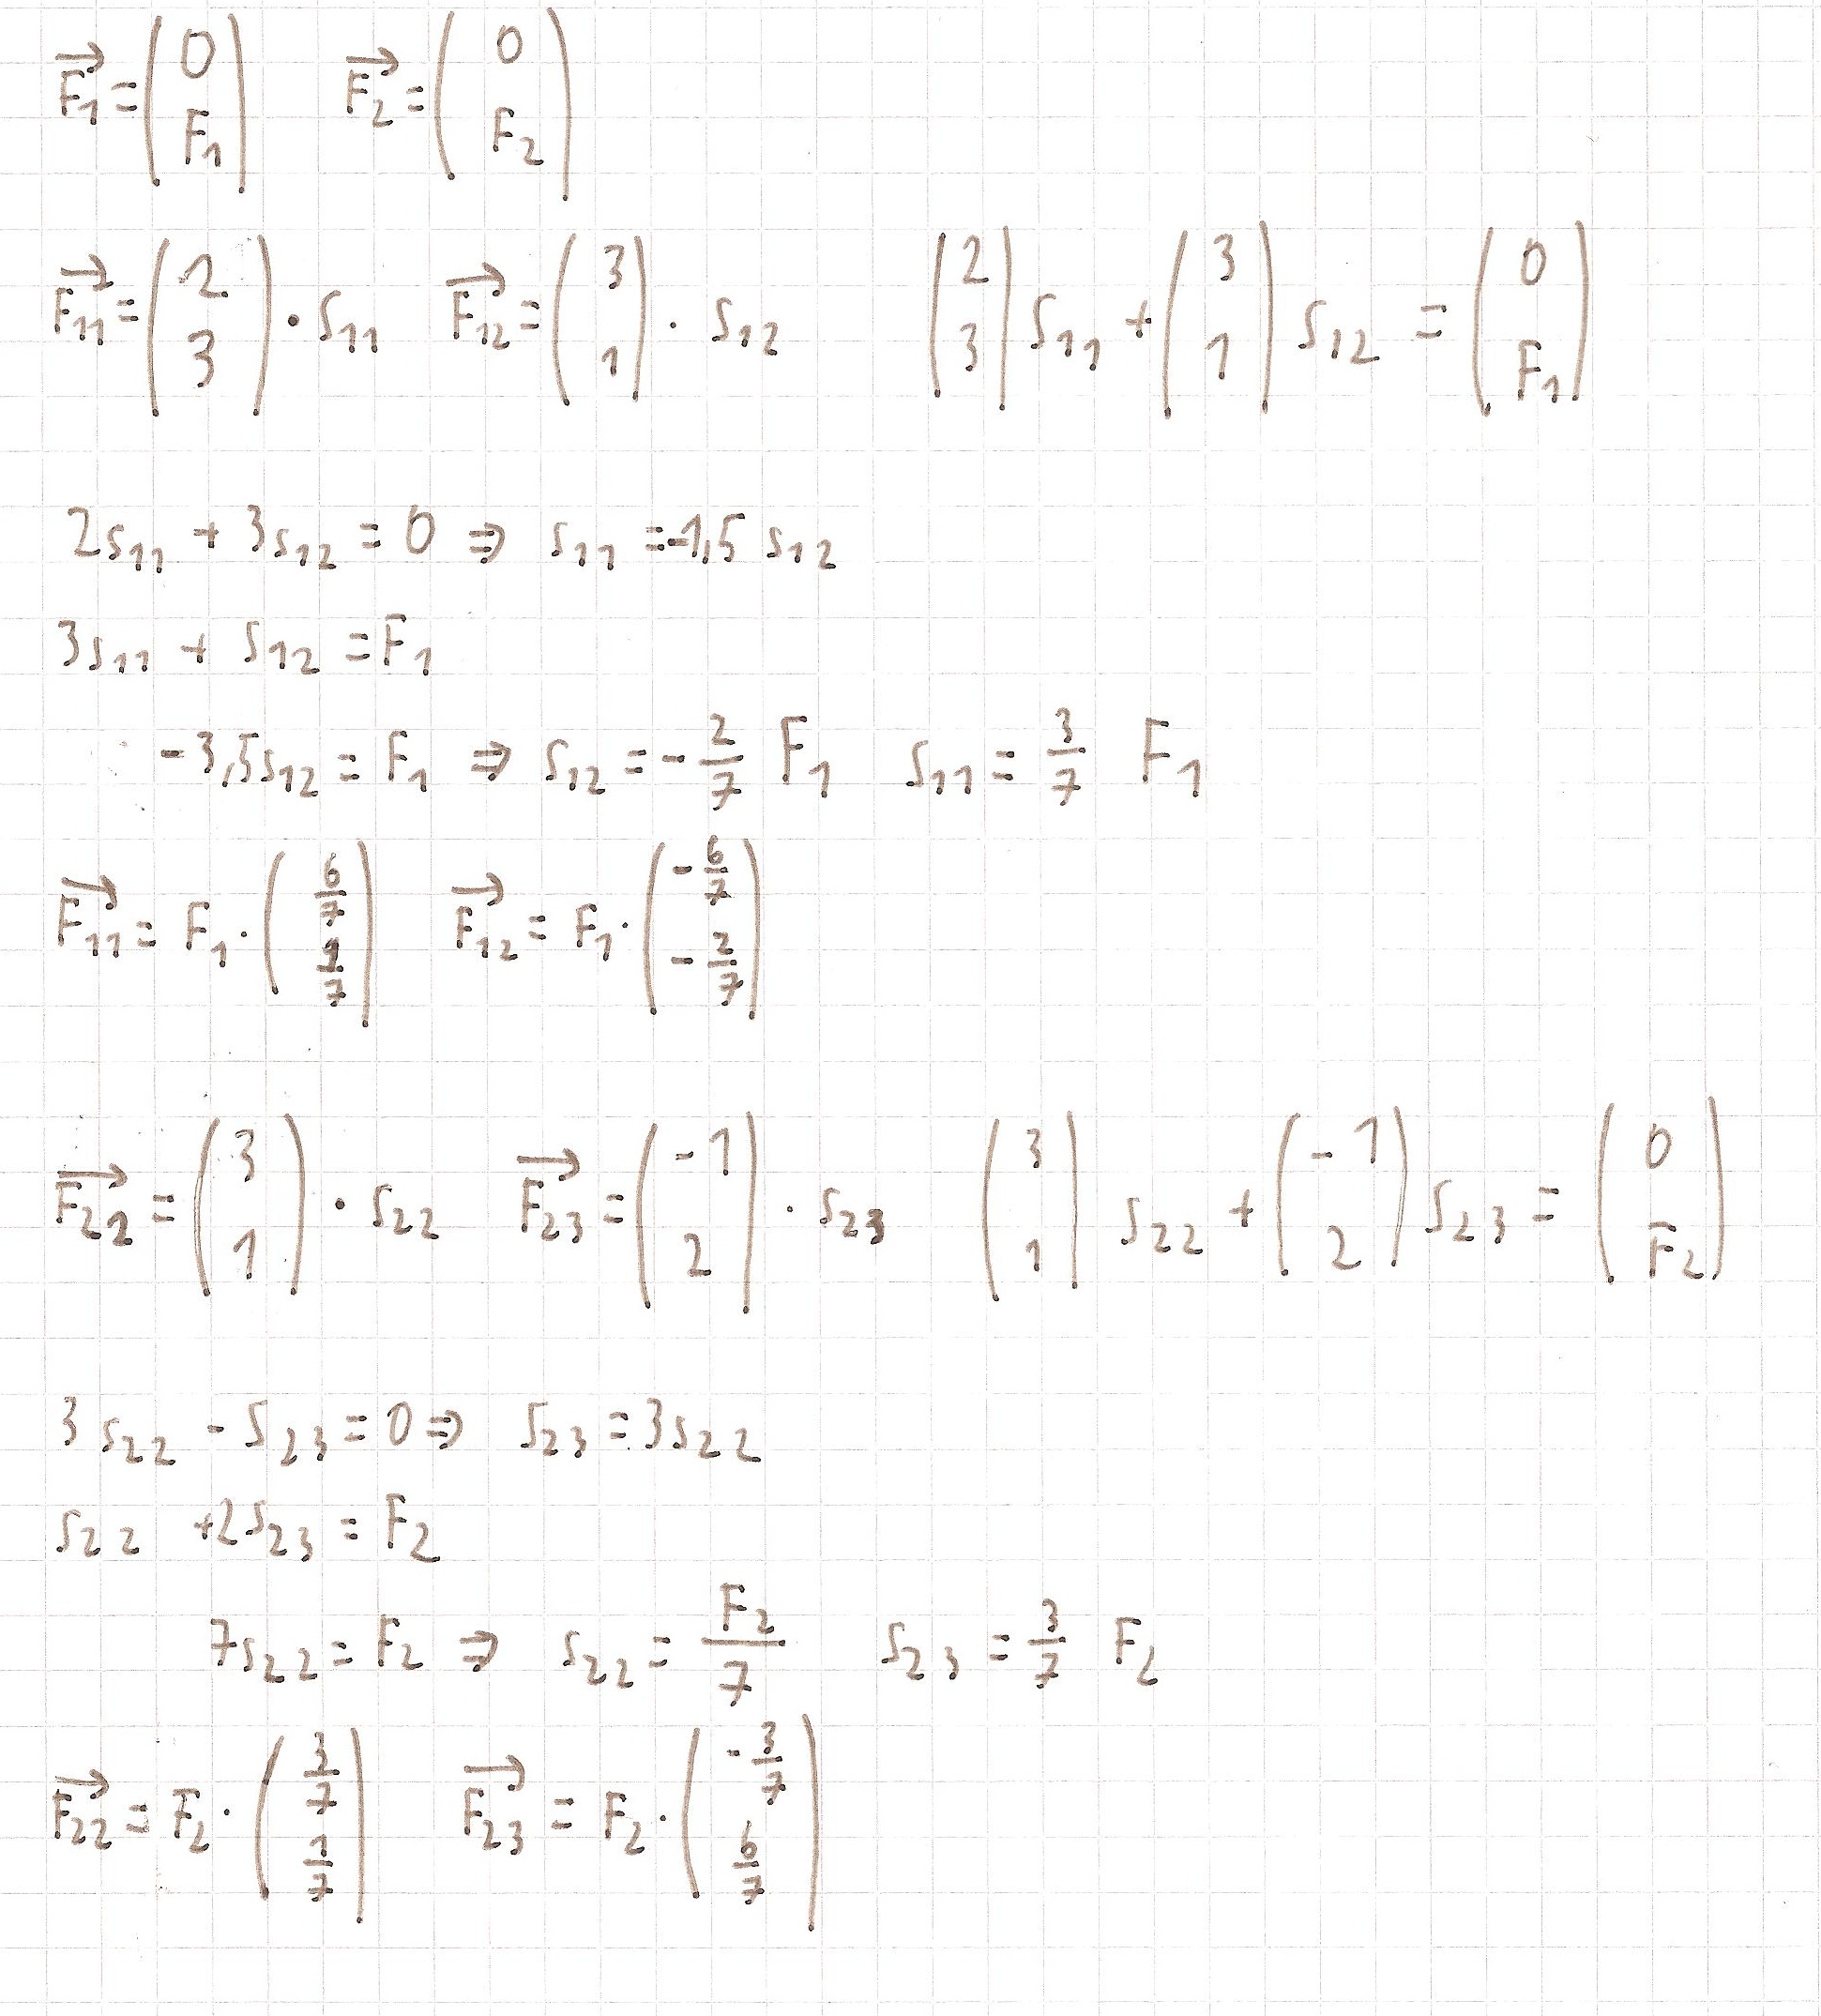 $\vec{F_1} = \begin{pmatrix} 0 \\ F_1 \end{pmatrix}$  $\vec{F_2} = \begin{pmatrix} 0 \\ F_2 \end{pmatrix}$
$\vec{F_{11}} = \begin{pmatrix} 2 \\ 3 \end{pmatrix} \cdot s_{11}$  $\vec{F_{12}} = \begin{pmatrix} 3 \\ 1 \end{pmatrix} \cdot s_{12}$  $\begin{pmatrix} 2 \\ 3 \end{pmatrix} s_{11} + \begin{pmatrix} 3 \\ 1 \end{pmatrix} s_{12} = \begin{pmatrix} 0 \\ F_1 \end{pmatrix}$
$2s_{11} + 3s_{12} = 0 \Rightarrow s_{11} = -1,5 s_{12}$
$3s_{11} + s_{12} = F_1$
$-3,5s_{12} = F_1 \Rightarrow s_{12} = -\frac{2}{7} F_1$  $s_{11} = \frac{3}{7} F_1$
$\vec{F_{11}} = F_1 \cdot \begin{pmatrix} \frac{6}{7} \\ \frac{9}{7} \end{pmatrix}$  $\vec{F_{12}} = F_1 \cdot \begin{pmatrix} -\frac{6}{7} \\ -\frac{2}{7} \end{pmatrix}$
$\vec{F_{22}} = \begin{pmatrix} 3 \\ 1 \end{pmatrix} \cdot s_{22}$  $\vec{F_{23}} = \begin{pmatrix} -1 \\ 2 \end{pmatrix} \cdot s_{23}$  $\begin{pmatrix} 3 \\ 1 \end{pmatrix} s_{22} + \begin{pmatrix} -1 \\ 2 \end{pmatrix} s_{23} = \begin{pmatrix} 0 \\ F_2 \end{pmatrix}$
$3s_{22} - s_{23} = 0 \Rightarrow s_{23} = 3s_{22}$
$s_{22} + 2s_{23} = F_2$
$7s_{22} = F_2 \Rightarrow s_{22} = \frac{F_2}{7}$  $s_{23} = \frac{3}{7} F_2$
$\vec{F_{22}} = F_2 \cdot \begin{pmatrix} \frac{3}{7} \\ \frac{1}{7} \end{pmatrix}$  $\vec{F_{23}} = F_2 \cdot \begin{pmatrix} -\frac{3}{7} \\ \frac{6}{7} \end{pmatrix}$